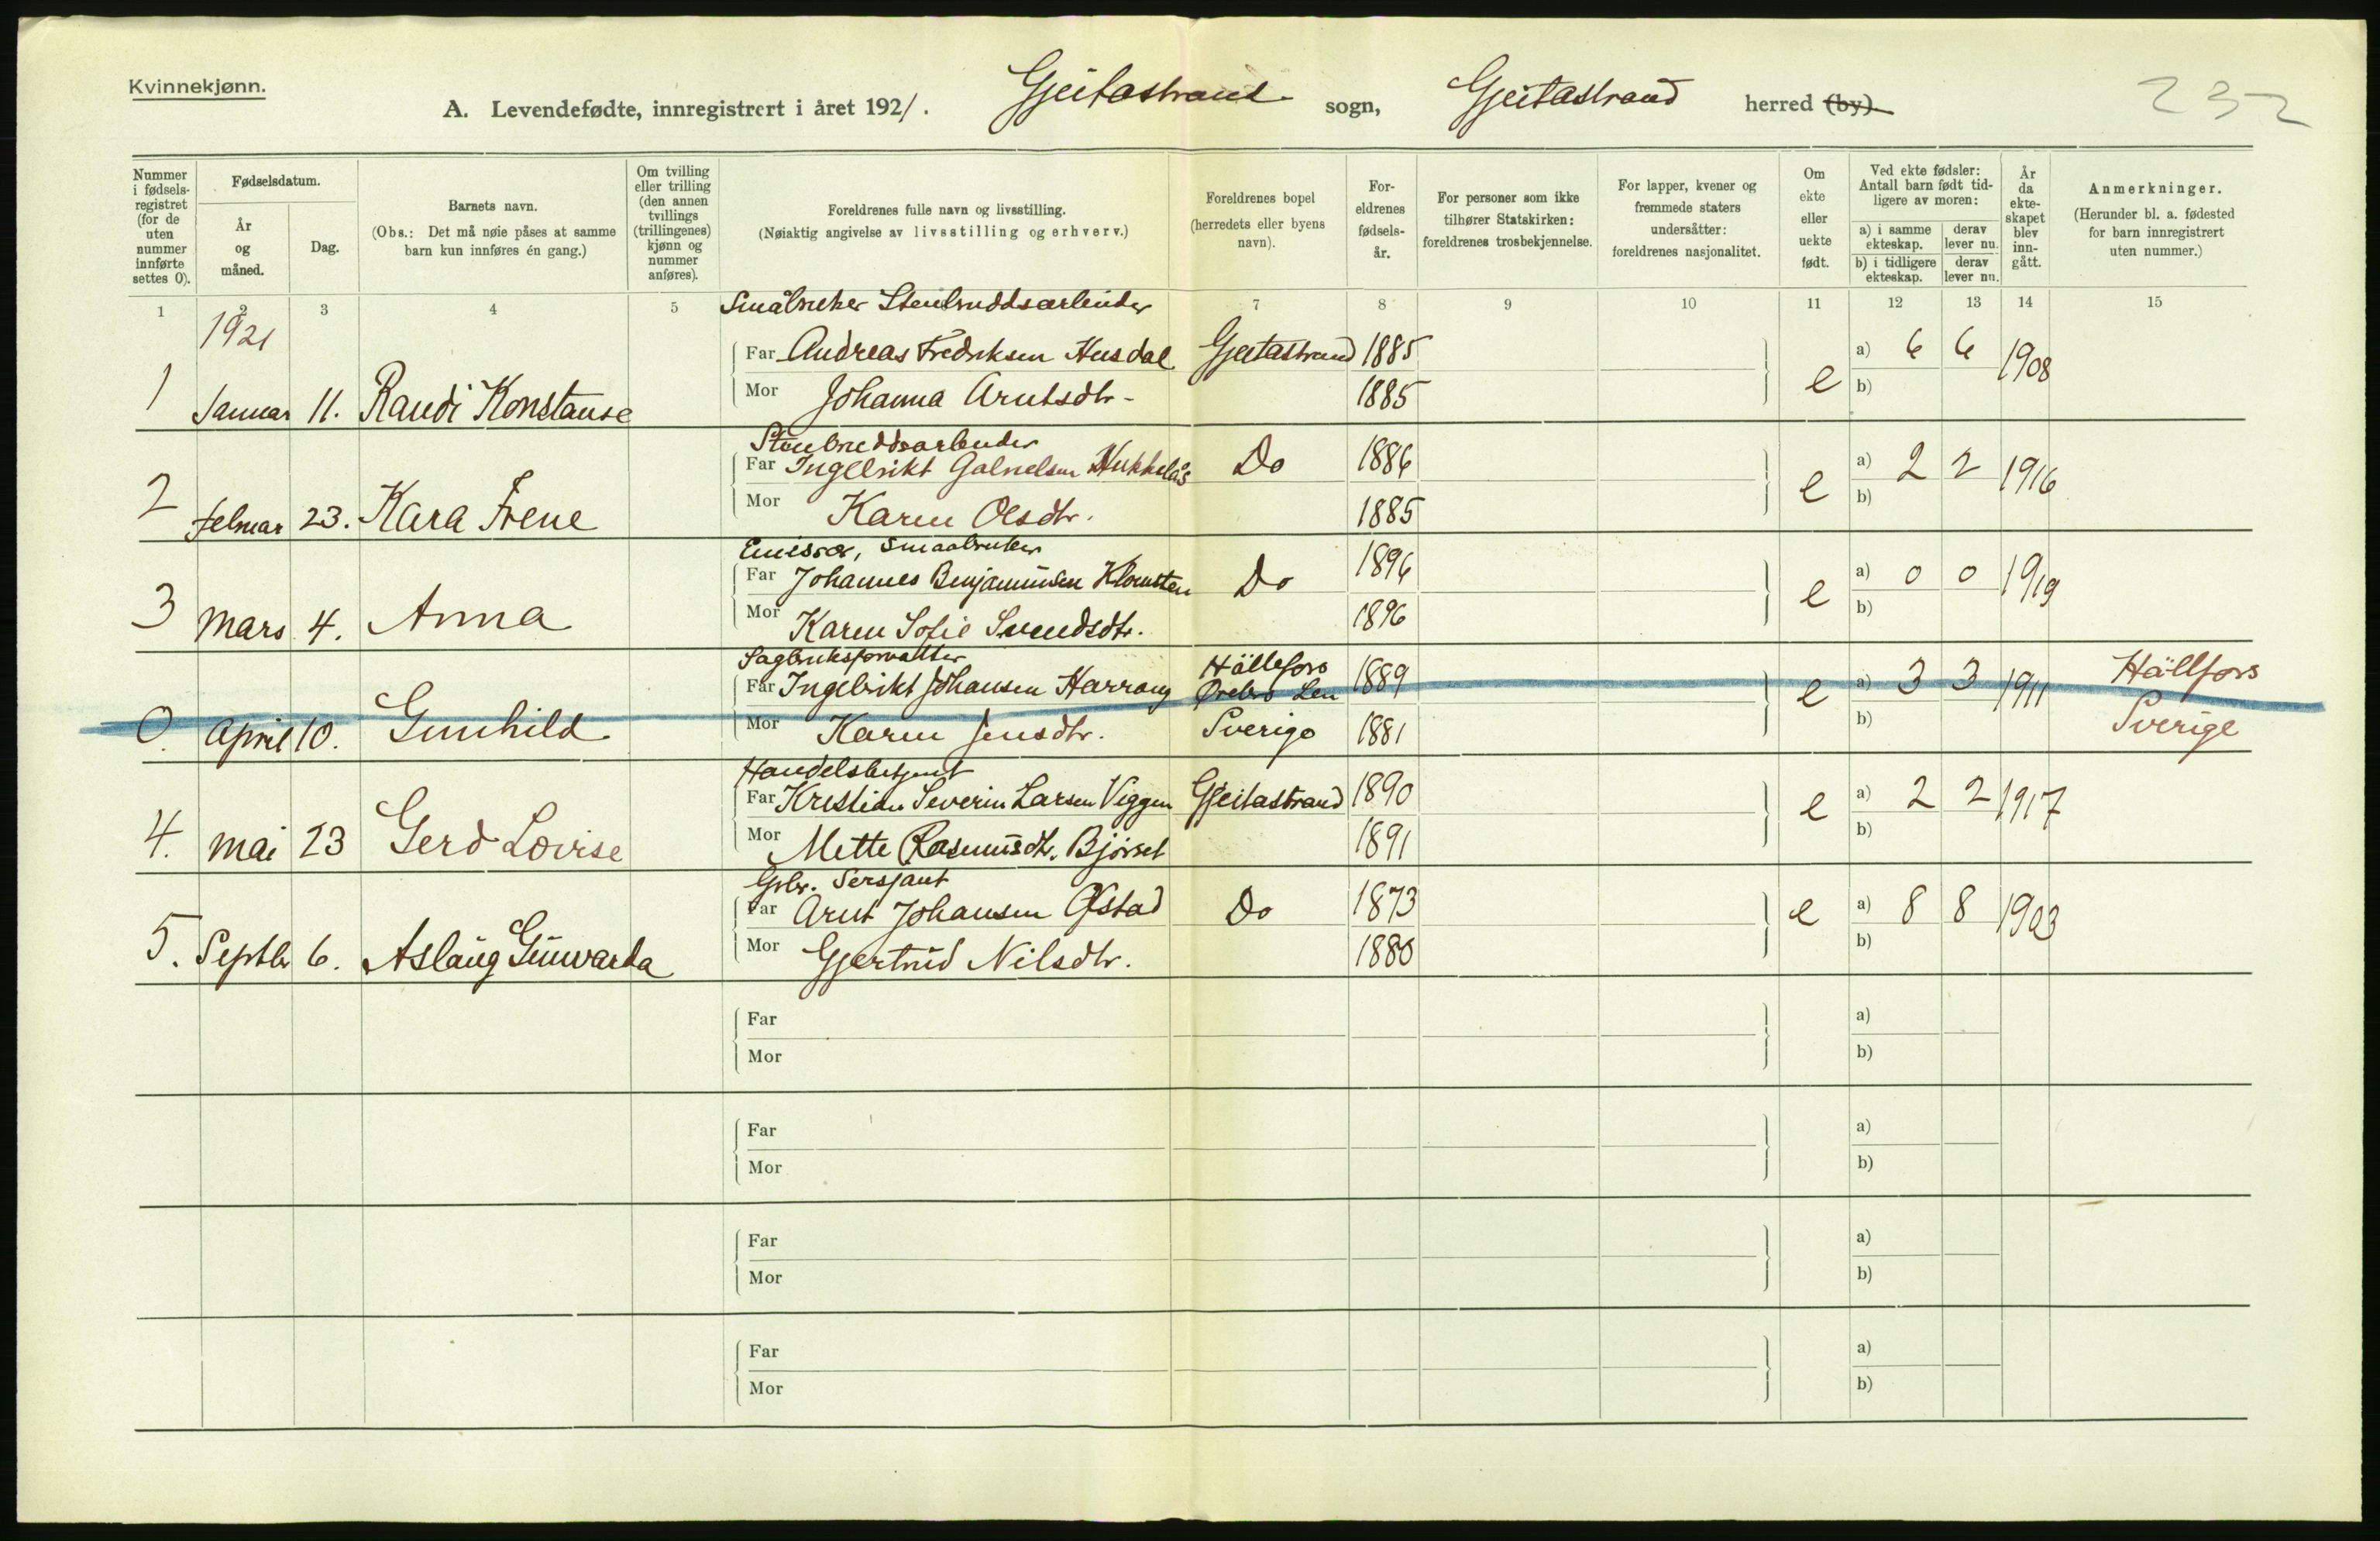 Kvinnekjønn.
A. Levendefødte, innregistrert i året 1921. Gjeitastrand sogn, Gjeitastrand herred (by)
232
Nummer i fødselsregistret (for de uten nummer innførte settes 0).
Fødselsdatum.
År og måned.
Dag.
Barnets navn.
(Obs.: Det må nøie påses at samme barn kun innføres én gang.)
Om tvilling eller trilling (den annen tvillings (trillingenes) kjønn og nummer anføres).
Foreldrenes fulle navn og livsstilling.
(Nøiaktig angivelse av livsstilling og erhverv.)
Foreldrenes bopel (herredets eller byens navn).
Foreldrenes fødselsår.
For personer som ikke tilhører Statskirken: foreldrenes trosbekjennelse.
For lapper, kvener og fremmede staters undersåtter: foreldrenes nasjonalitet.
Om ekte eller uekte født.
Ved ekte fødsler: Antall barn født tidligere av moren:
a) i samme ekteskap. derav lever nu.
b) i tidligere ekteskap. derav lever nu.
År da ekteskapet blev inngått.
Anmerkninger.
(Herunder bl. a. fødested for barn innregistrert uten nummer.)
1 2 3 4 5 7 8 9 10 11 12 13 14 15
1921
Småbruker Stenbruddsarbeider
1 Januar 11. Randi Konstanse
Far Andreas Fredriksen Husdal Gjeitastrand 1885
Mor Johanna Arntsdtr. 1885
e a) 6 6 1908
b)
Stenbruddsarbeider
2 Februar 23. Kara Irene
Far Ingebrikt Gabrielsen Hukkelås Do 1886
Mor Karen Olsdtr. 1885
e a) 2 2 1916
b)
Emissær, Smaabruker
3 Mars 4. Anna
Far Johannes Benjaminsen Klomsten Do 1896
Mor Karen Sofie Svendsdtr. 1896
e a) 0 0 1919
b)
Sagbruksforvalter
0. April 10. Gunhild
Far Ingebrikt Johansen Harrang Hällefors Ørebro Len Sverige 1889
Mor Karen Jensdtr. 1881
e a) 3 3 1911
b)
Hällfors Sverige
Handelsbetjent
4. Mai 23 Gerd Lovise
Far Kristian Severin Larsen Viggen Gjeitastrand 1890
Mor Mette Rasmusdtr. Bjørset 1891
e a) 2 2 1917
b)
Gbr. Sersjant
5. Septbr 6. Aslaug Gunvarda
Far Arnt Johansen Ofstad Do 1873
Mor Gjertrud Nilsdtr. 1880
e a) 8 8 1903
b)
Far a)
Mor b)
Far a)
Mor b)
Far a)
Mor b)
Far a)
Mor b)